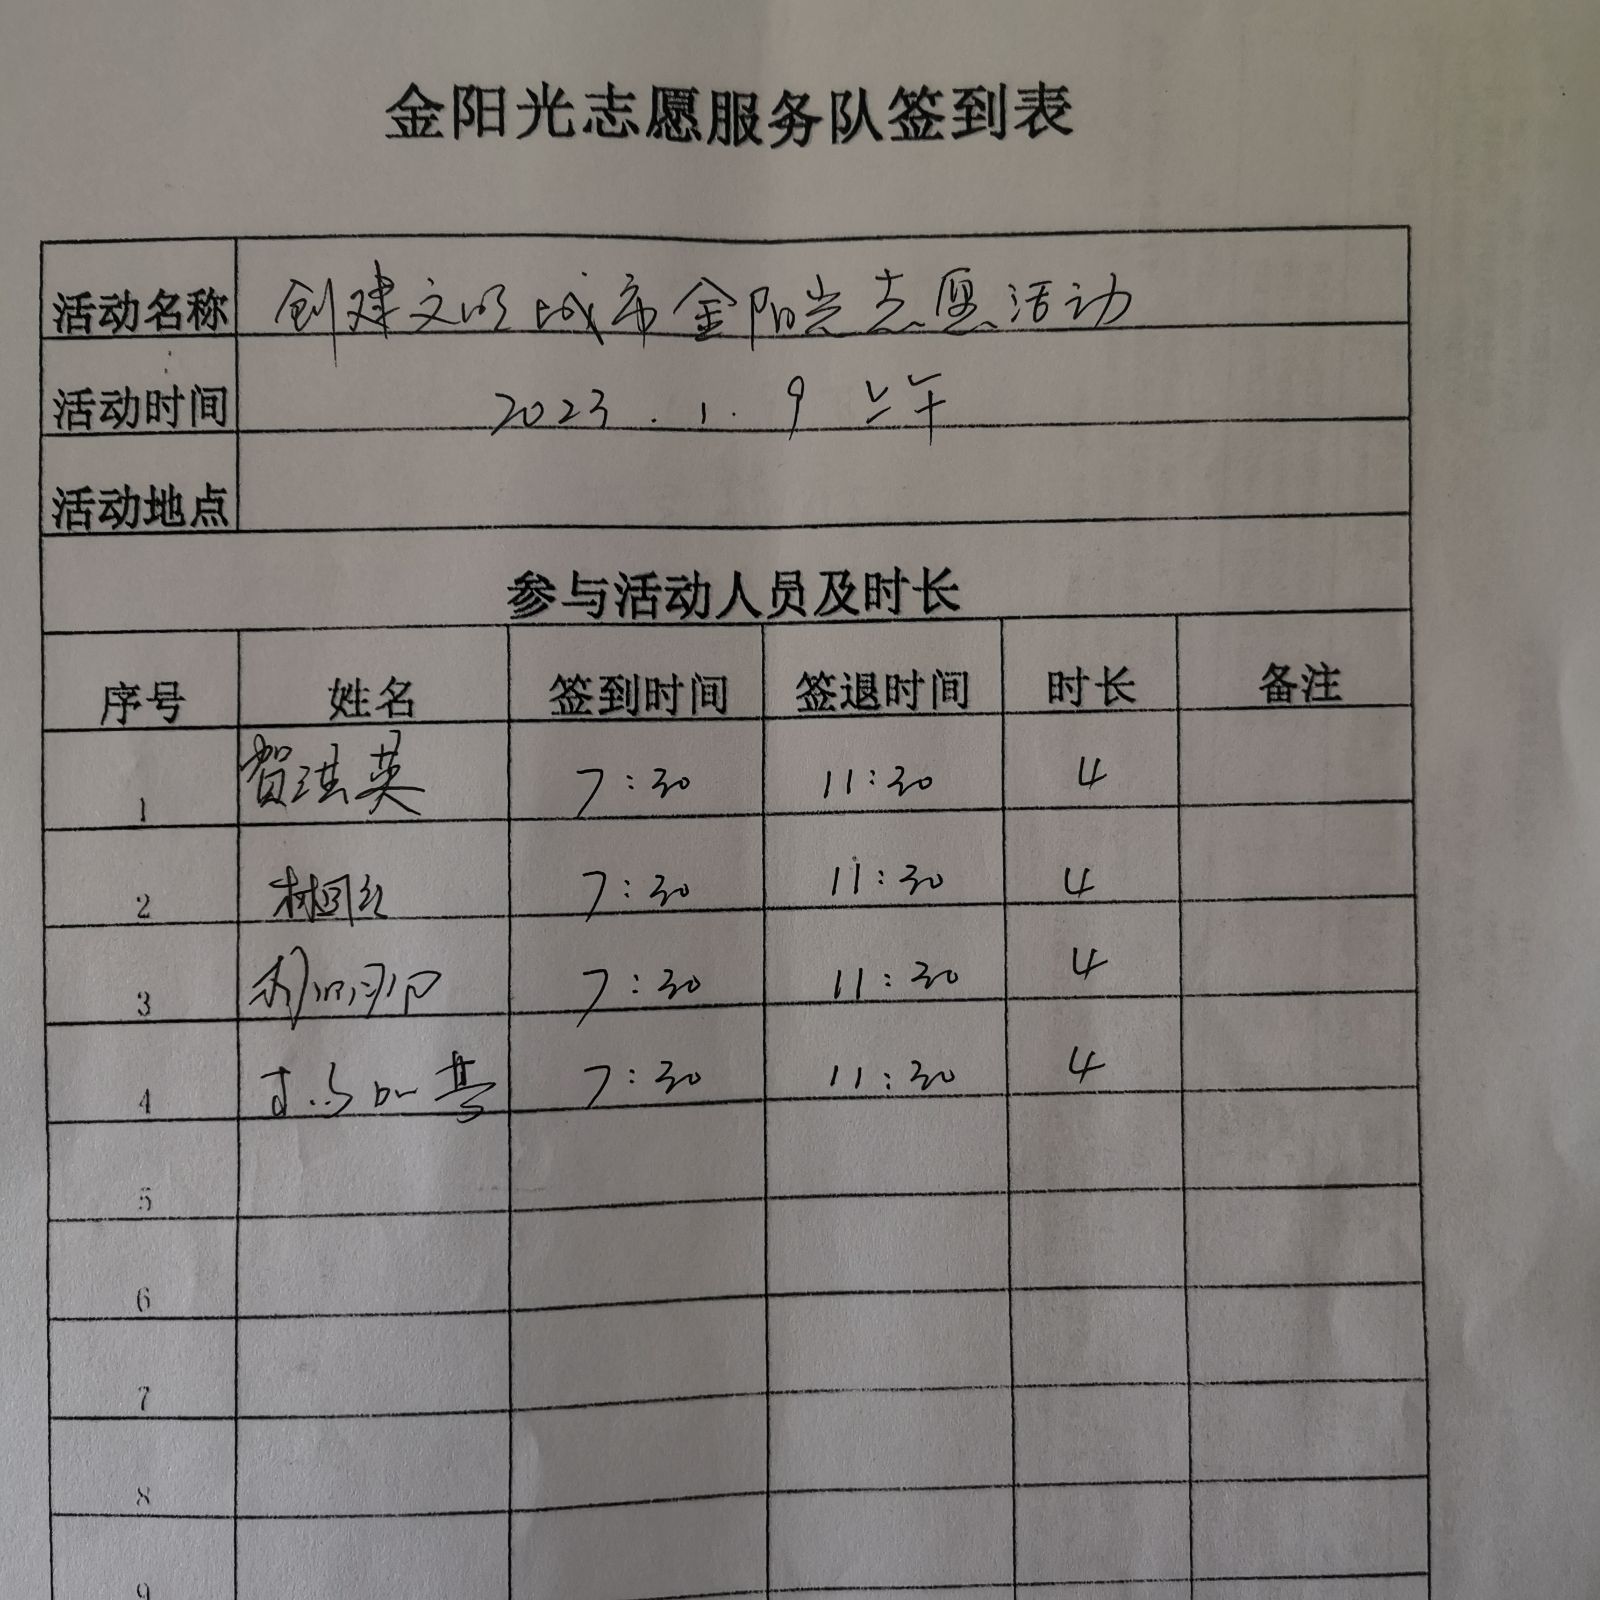 金阳光志愿服务队签到表
活动名称 创建文明城市金阳光志愿活动
活动时间 2023.1.9 上午
活动地点
参与活动人员及时长
序号 姓名 签到时间 签退时间 时长 备注
1 贺淇英 7:30 11:30 4
2 7:30 11:30 4
3 7:30 11:30 4
4 7:30 11:30 4
5
6
7
8
9